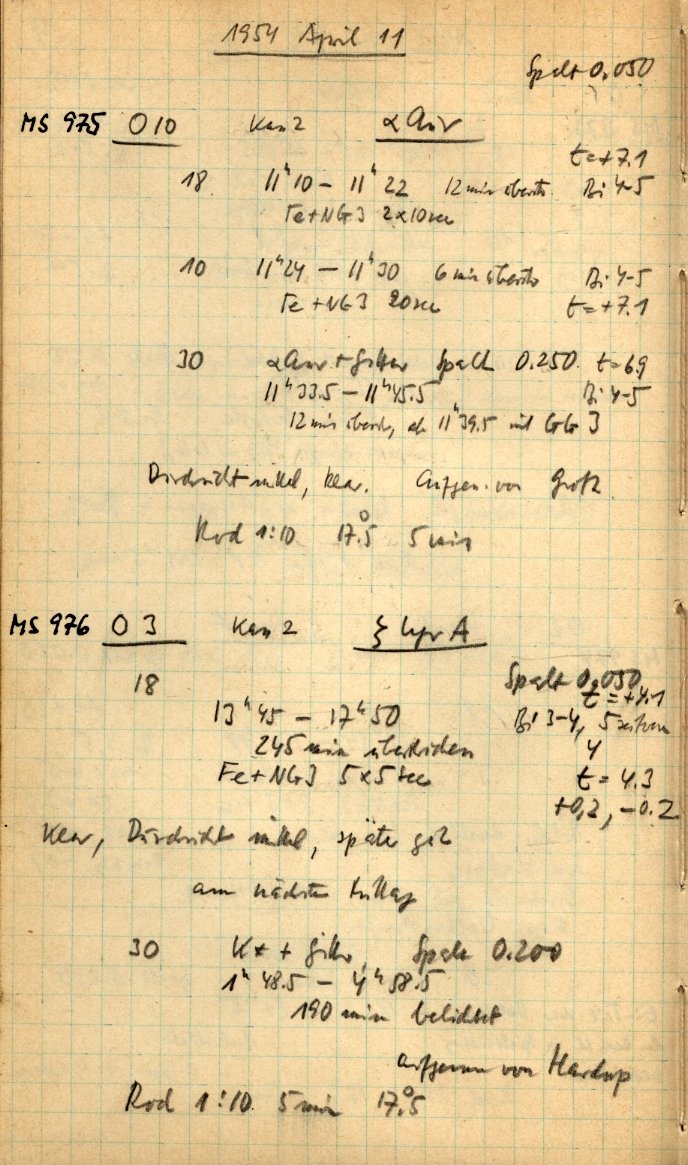 1954 April 11
Spalt 0.050
MS 975 O 10 Kam 2 α Aur
t = +7.1
18 11ʰ10 – 11ʰ22 12 min Bi 4-5
Fe+NG3 2x10 sec
10 11ʰ24 – 11ʰ30 6 min Bi 4-5
Fe+NG3 20 sec t = +7.1
30 α Aur + Gitter Spalt 0.250 t = 6.9
11ʰ33.5 – 11ʰ45.5 Bi 4-5
12 min ab 11ʰ39.5 mit GG 3
Durchsicht mittel, klar. Aufgen. von
Rod 1:10 17.°5 5 min
MS 976 O 3 Kam 2 ξ Lyr A
18 Spalt 0.050
t = +4.1
13ʰ45 – 17ʰ50 Bi 3-4, 5
245 min 4
Fe+NG3 5x5 sec t = 4.3
+0,2, -0.2
klar, Durchsicht mittel, später gut
am nächsten
30 K* + Gitter, Spalt 0.200
1ʰ48.5 – 4ʰ58.5
190 min belichtet
aufgenommen von
Rod 1:10 5 min 17.°5